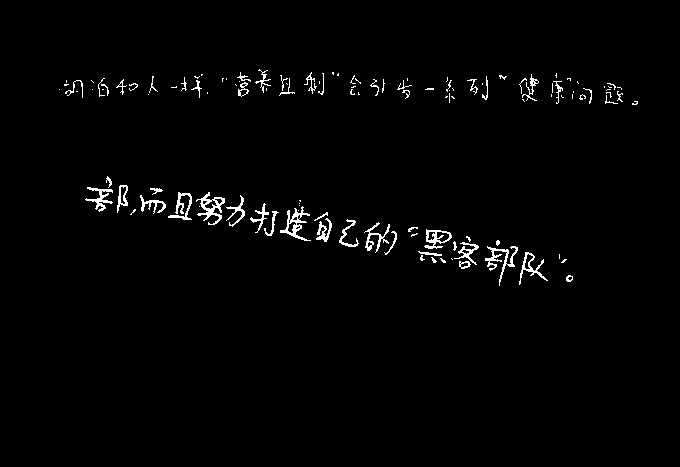 湖泊和人一样,“营养且剩”会引发一系列“健康”问题。
部,而且努力打造自己的“黑客部队”。